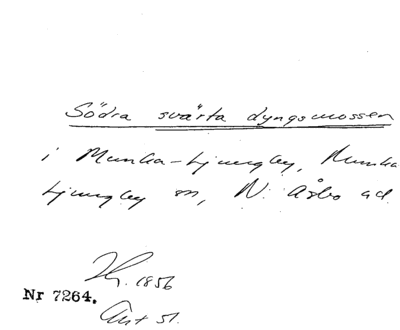 Södra svärta dyngsmossen
i Munka-Ljungby, Munka
Ljungby sn, N. Åsbo hd.
1856
Nr 7264.
Akt 51.